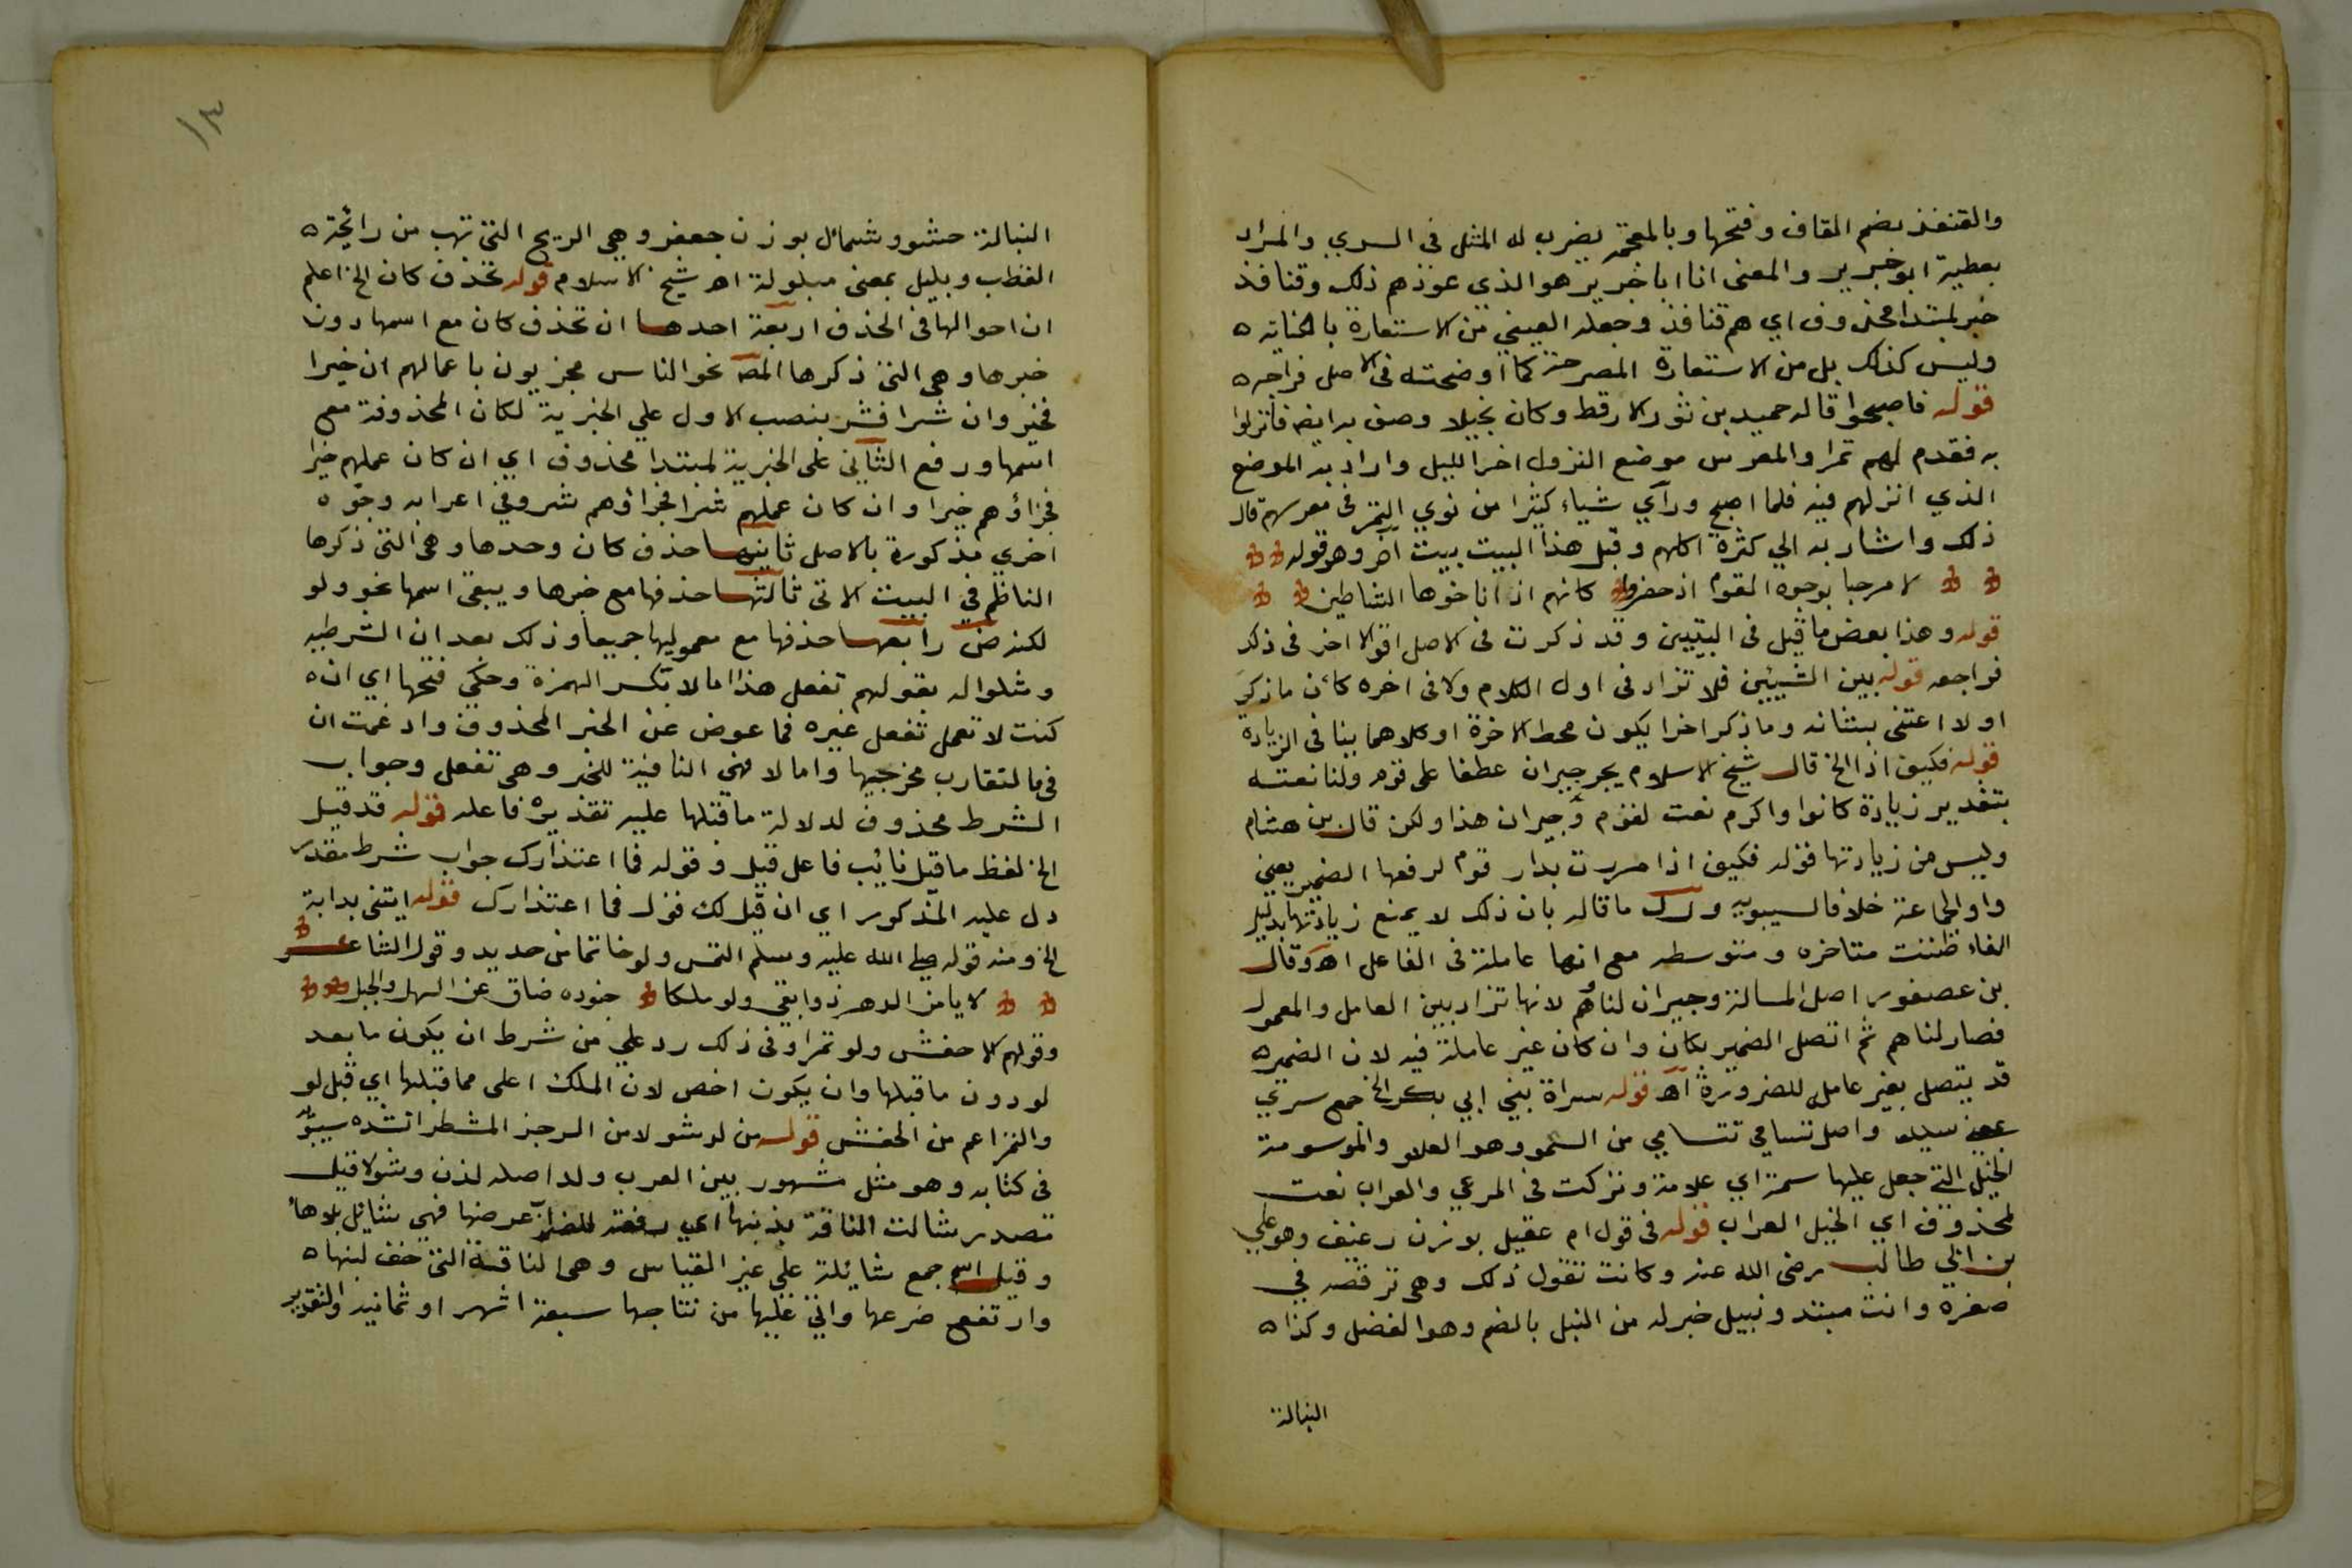 والقنفذ بضم القاف وفتحها وبالمعجمة يضرب له المثل في السري والمراد
بعطية ابو جرير والمعنى انا ابا جرير هو الذي عودهم ذلك وقنافذ
خبر لمبتدا محذوف اي هم قنافذ وجعله العيني من الاستعارة بالكناية ه
وليس كذلك بل من الاستعارة المصرحة كما اوضحته في الاصل فراجعه ه
قوله فاصبحوا قاله حميد بن ثور الارقط وكان بخيلا وصف به اضيافا نزلوا
به فقدم لهم تمرا والمعرس موضع النزول اخر الليل واراد به الموضع
الذي انزلهم فيه فلما اصبح ورأى شياء كثيرا من نوي التمر في معرسهم قال
ذلك واشار به الي كثرة اكلهم وقبل هذا البيت بيت آخر وهو قوله
لا مرحبا بوجوه القوم اذ حضروا كانهم اذ اناخوها الشياطين
قوله وهذا بعض ما قيل في البيتين وقد ذكرت في الاصل اقوالا اخر في ذلك
فراجعه قوله بين الشيئين فلا تزاد في اول الكلام ولا في اخره كأن ما ذكر
اولا اعتنى بشانه وما ذكر اخرا يكون محط الاخرة اوكلاهما ينافي الزيادة
قوله فكيف اذ الخ قال شيخ الاسلام يجر جيران عطفا على قوم ولنا نعته
بتقدير زيادة كانوا واكرم نعت لقوم وجيران هذا ولكن قال بن هشام
وليس من زيادتها قوله فكيف اذا مررت بدار قوم لرفعها الضمير يعني
واو الجماعة خلافا لسيبويه ورد ما قاله بان ذلك لا يمنع زيادتها بدليل
الغاء ظننت متاخره ومتوسطه مع انها عاملة في الفاعل اهـ وقال
بن عصفور اصل المسالة وجيران لنا هم لانها تزاد بين العامل والمعمول
فصار لنا هم ثم اتصل الضمير بكان وان كان غير عاملة فيه لان الضمير ه
قد يتصل بغير عامل للضرورة اهـ قوله سراة بني ابي بكر الخ جمع سري
بمعنى سيد واصل تسامي تتسامي من السمو وهو العلو والموسومة
الخيل التي جعل عليها سمة اي علامة وتركت في المرعي والعراب نعت
لمحذوف اي الخيل العراب قوله في قول ام عقيل بوزن رغيف وهو علي
بن ابي طالب رضي الله عنه وكانت تقول ذلك وهي ترقصه في
صغره وانت مبتد ونبيل خبر له من النبل بالضم وهو الفضل وكذا ه
النبالة
١٣
النبالة حشو وشمأل بوزن جعفر وهي الريح التي تهب من رائحة ه
القطب وبليل بمعنى مبلولة اهـ شيخ الاسلام قوله تحذف كان الخ اعلم
ان احوالها في الحذف اربعة احدها ان تحذف كان مع اسمها دون
خبرها وهي التي ذكرها المصـ نحو الناس مجزيون باعمالهم ان خيرا
فخير وان شرا فشر بنصب الاول علي الخبرية لكان المحذوفة مع
اسمها ورفع الثاني على الخبرية لمبتدا محذوف اي ان كان عملهم خيرا
فجزاؤهم خيرا وان كان عملهم شرا فجزاؤهم شر وفي اعرابه وجوه
اخري مذكورة بالاصل ثانيها حذف كان وحدها وهي التي ذكرها
الناظم في البيت الاتي ثالثها حذفها مع خبرها ويبقى اسمها نحو ولو
لكنه ضـ رابعها حذفها مع معموليها جميعا وذلك بعد ان الشرطيه
ومثلوا له بقولهم تفعل هذا اما لا بكسر الهمزة وحكي فتحها اي ان ه
كنت لا تعمل تفعل غيره فما عوض عن الخبر المحذوف وادغمت ان
في ما لتقارب مخرجيها واما لا فهي النافية للخبر وهي تفعل وجواب
الشرط محذوف لدلالة ما قبلها عليه تقديره فاعله قوله قد قيل
الخ لفظ ما قيل نايب فاعل قيل وقوله فما اعتذارك جواب شرط مقدر
دل عليه المذكور اي ان قيل لك قول فما اعتذارك قوله ايتني بدابة
الخ ومنه قوله صلى الله عليه وسلم التمس ولو خاتما من حديد وقول الشاعر
لا يامن الدهر ذوا بغي ولو ملكا جنوده ضاق عن السهل والجبل
وقولهم الا حفش ولو تمرا وفي ذلك رد علي من شرط ان يكون ما بعد
لو دون ما قبلها وان يكون اخص لان الملك اعلى مما قبلها اي قبل لو
والتمر اعم من الحفش قوله من لد شولا من الرجز المشطر انشده سيبويه
في كتابه وهو مثل مشهور بين العرب ولد اصله لدن وشولا قيل
مصدر شالت الناقة بذنبها اي رفعته للضراب عرضها فهي شائل بلا هاء
وقيل اسم جمع شايلة علي غير القياس وهي الناقة التي خف لبنها ه
وارتفع ضرعها واتي عليها من نتاجها سبعة اشهر او ثمانيه والتقدير